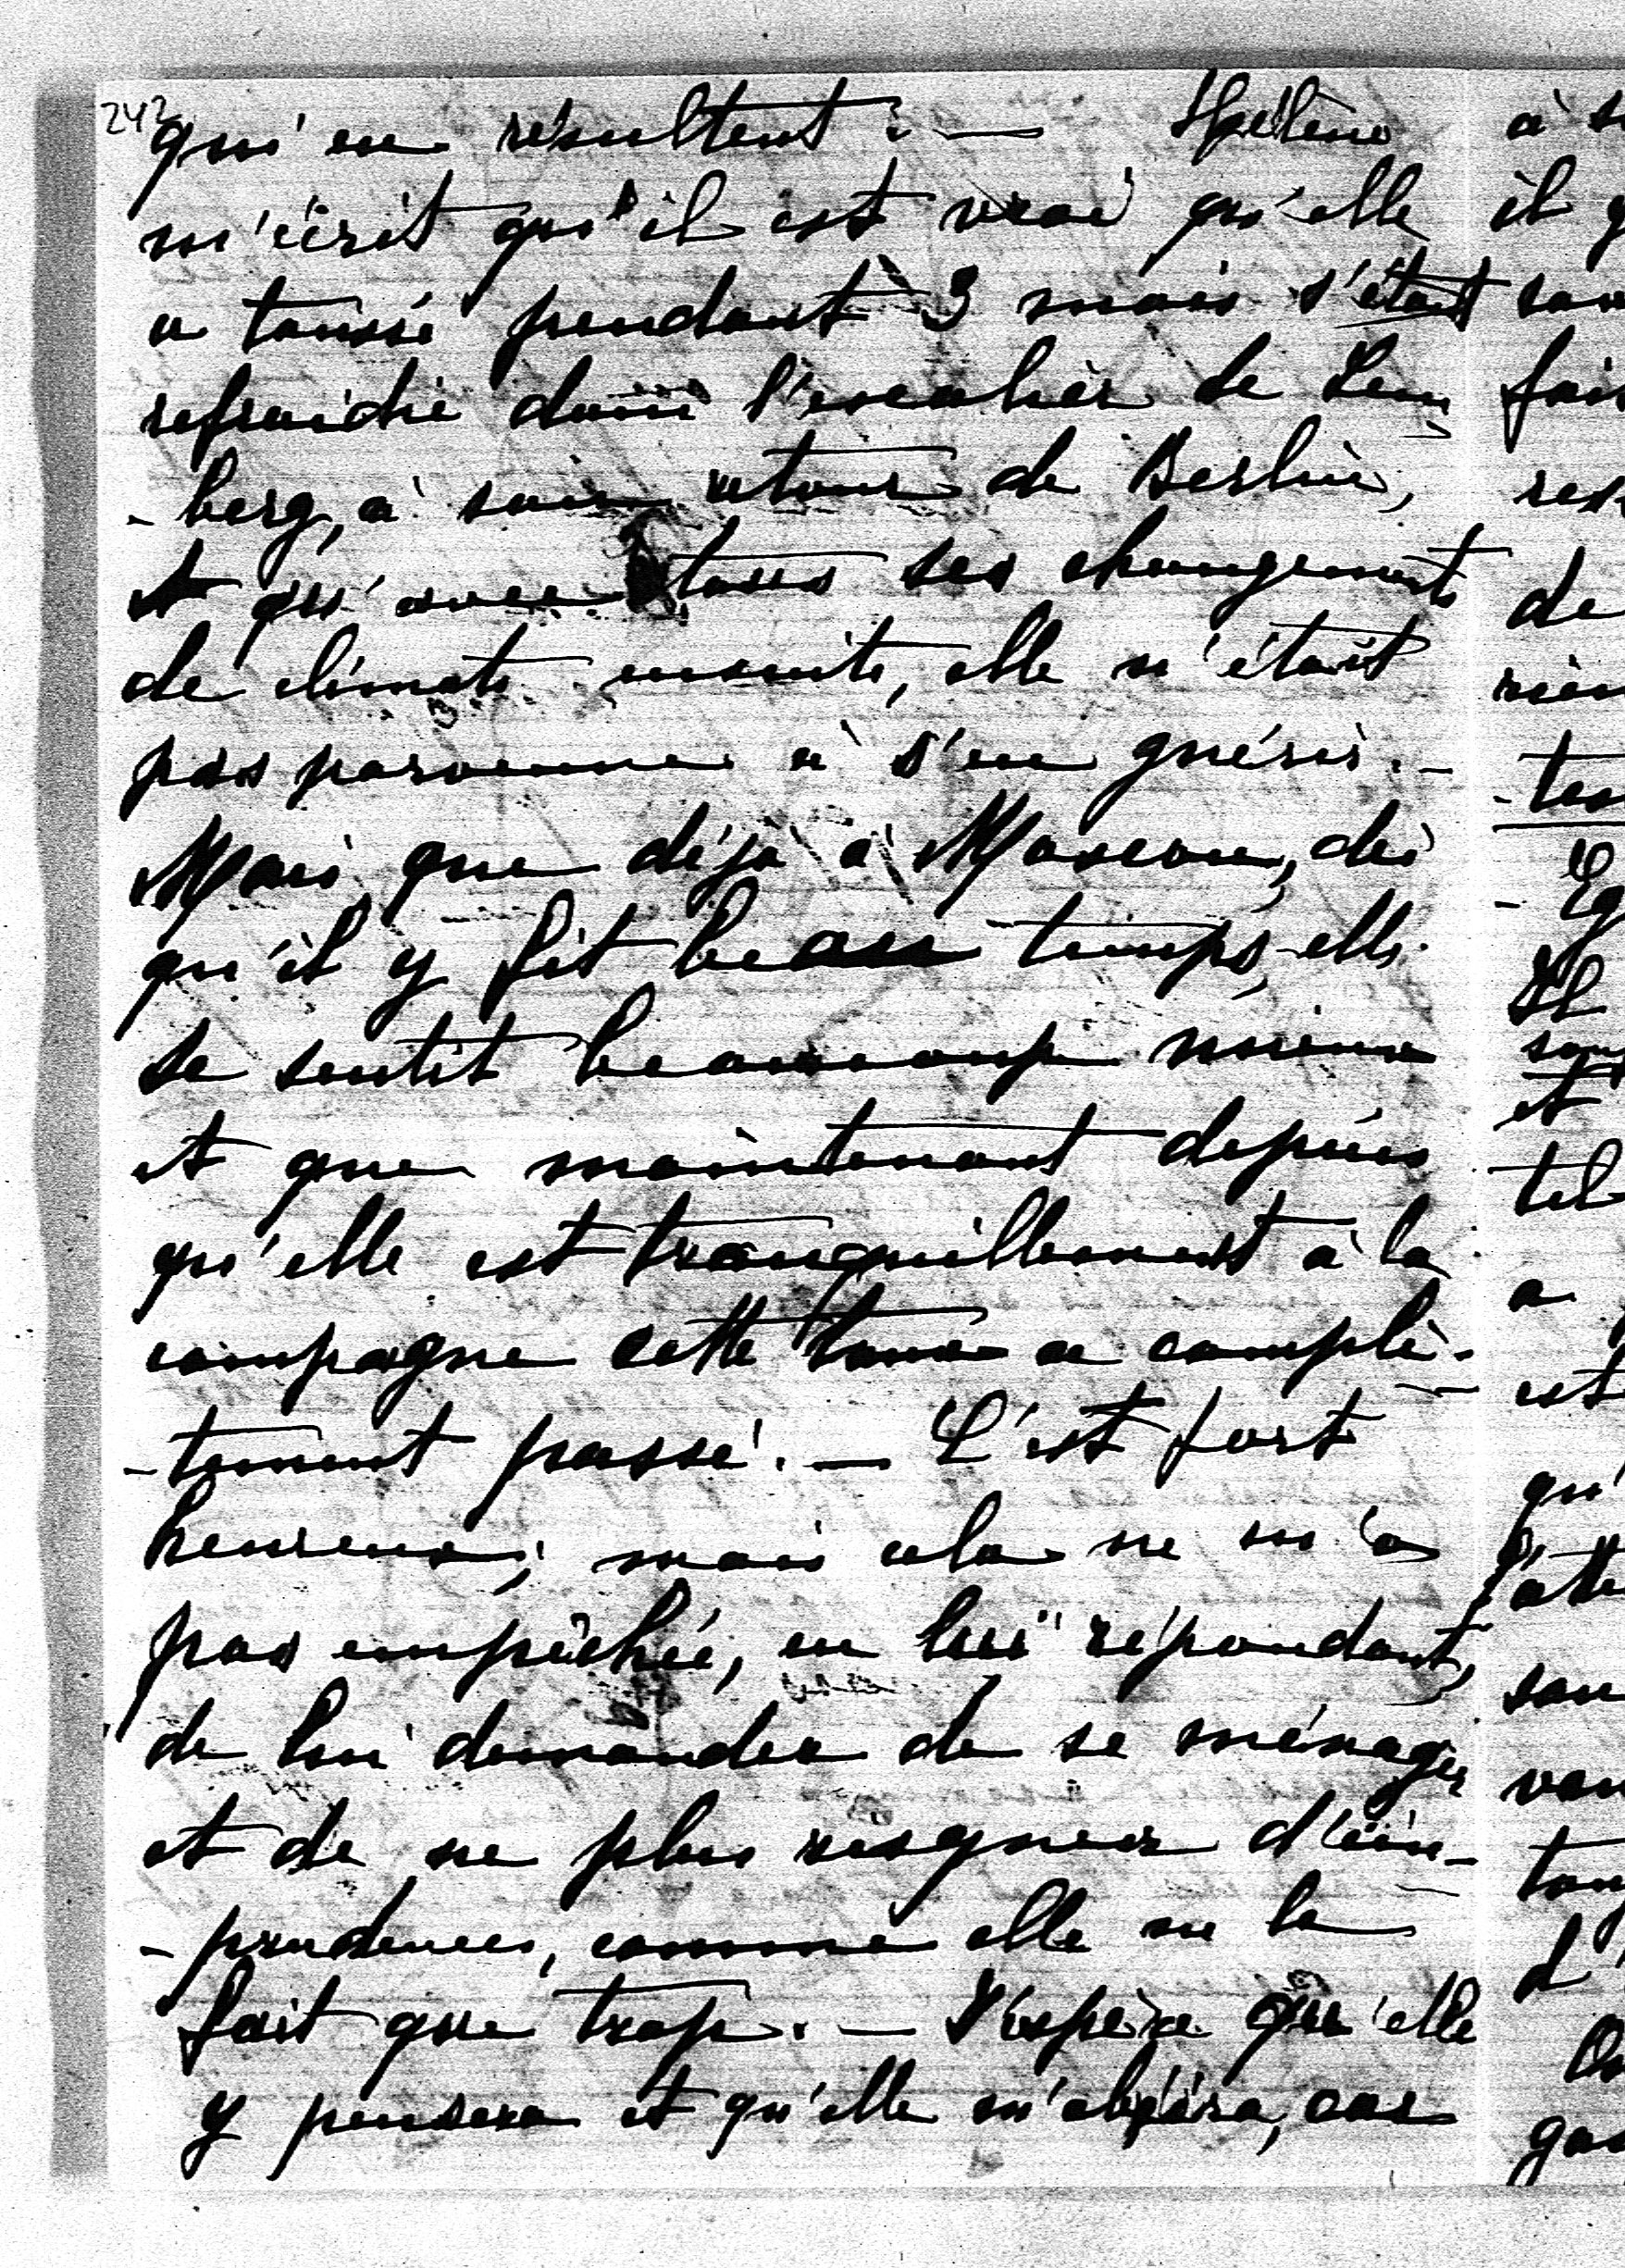 242
qu'en résultent ? — Hélène
m'écrit qu'il est vrai qu'elle
a toussé pendant 3 mois s'étant
refroidie dans l'escalier de Lem
-berg, à son retour de Berlin,
et qu'avec tous ses changements
de climats ensuite, elle n'était
pas parvenue à s'en guérir. –
Mais que déjà à Moscou, dès
qu'il y fit beau temps, elle
se sentit beaucoup mieux
et que maintenant depuis
qu'elle est tranquillement à la
campagne cette toux a complè-
-tement passé. — C'est fort
heureux; mais cela ne m'a
pas empêchée, en lui répondant,
de lui demander de se ménager
et de ne plus risquer d'im-
-prudences, comme elle ne le
fait que trop. — J'espère qu'elle
y pensera et qu'elle m'obéira, car